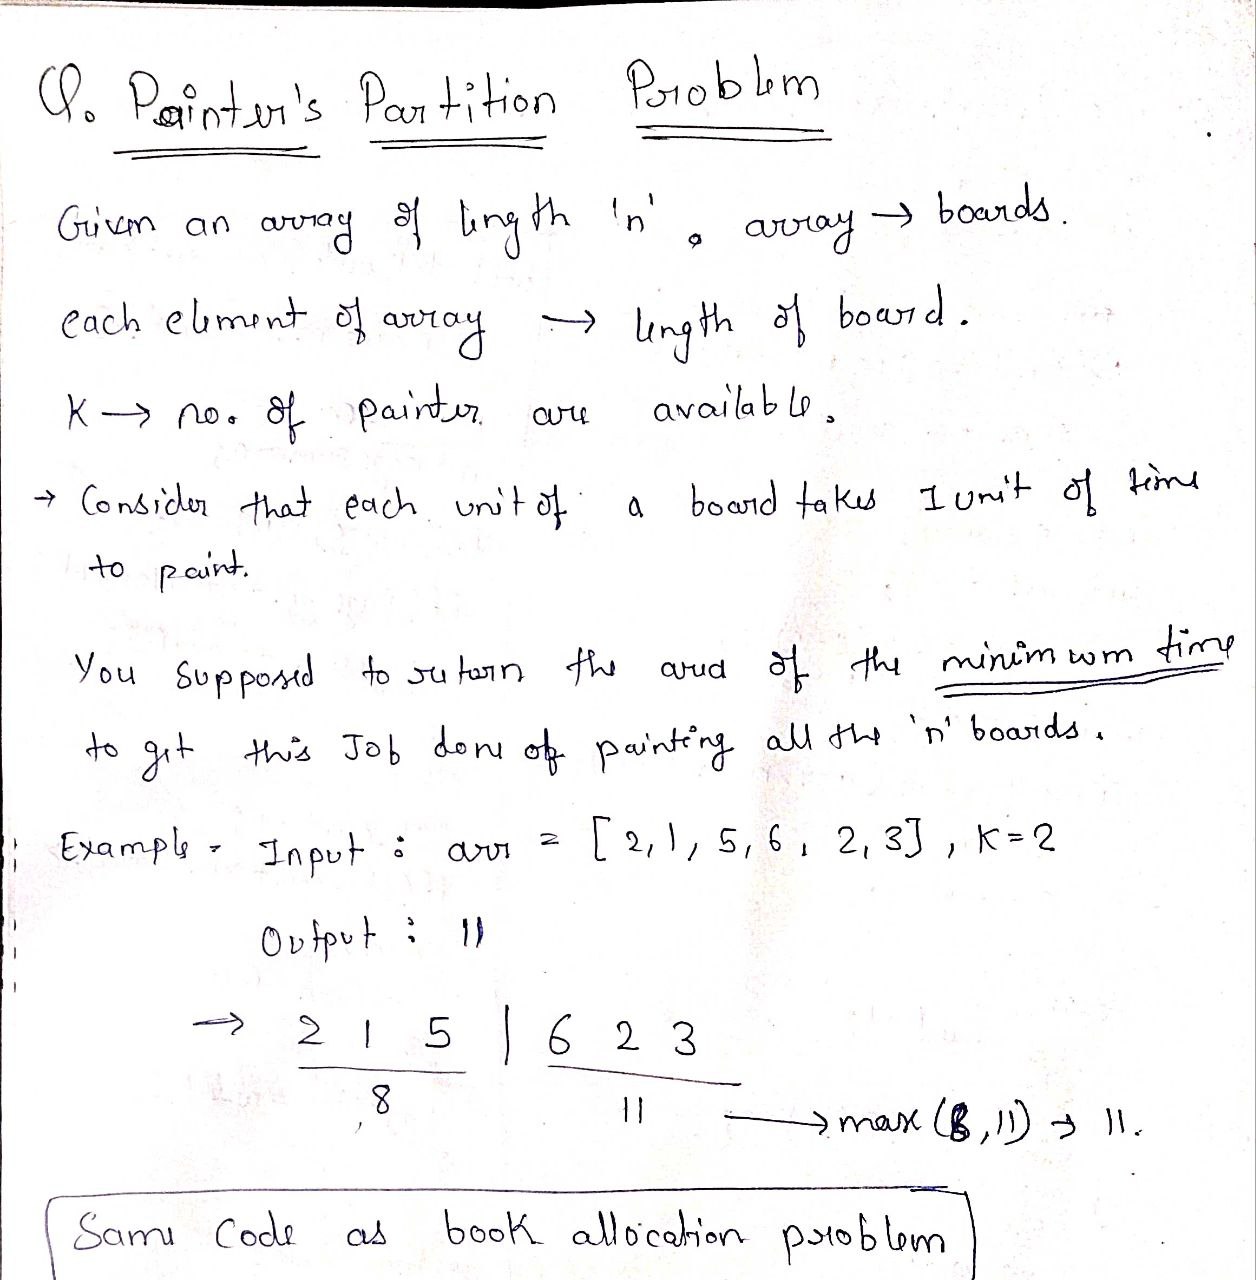 Q. Painter's Partition Problem
Given an array of length 'n', array → boards.
each element of array → length of board.
K → no. of painter are available.
→ Consider that each unit of a board takes 1 unit of time
to paint.
You Supposed to return the area of the minimum time
to get this Job done of painting all the 'n' boards.
Example - Input : arr = [2,1,5,6,2,3], K=2
Output : 11
→ 2 1 5 | 6 2 3
8 11 → max(8,11) → 11.
Same Code as book allocation problem